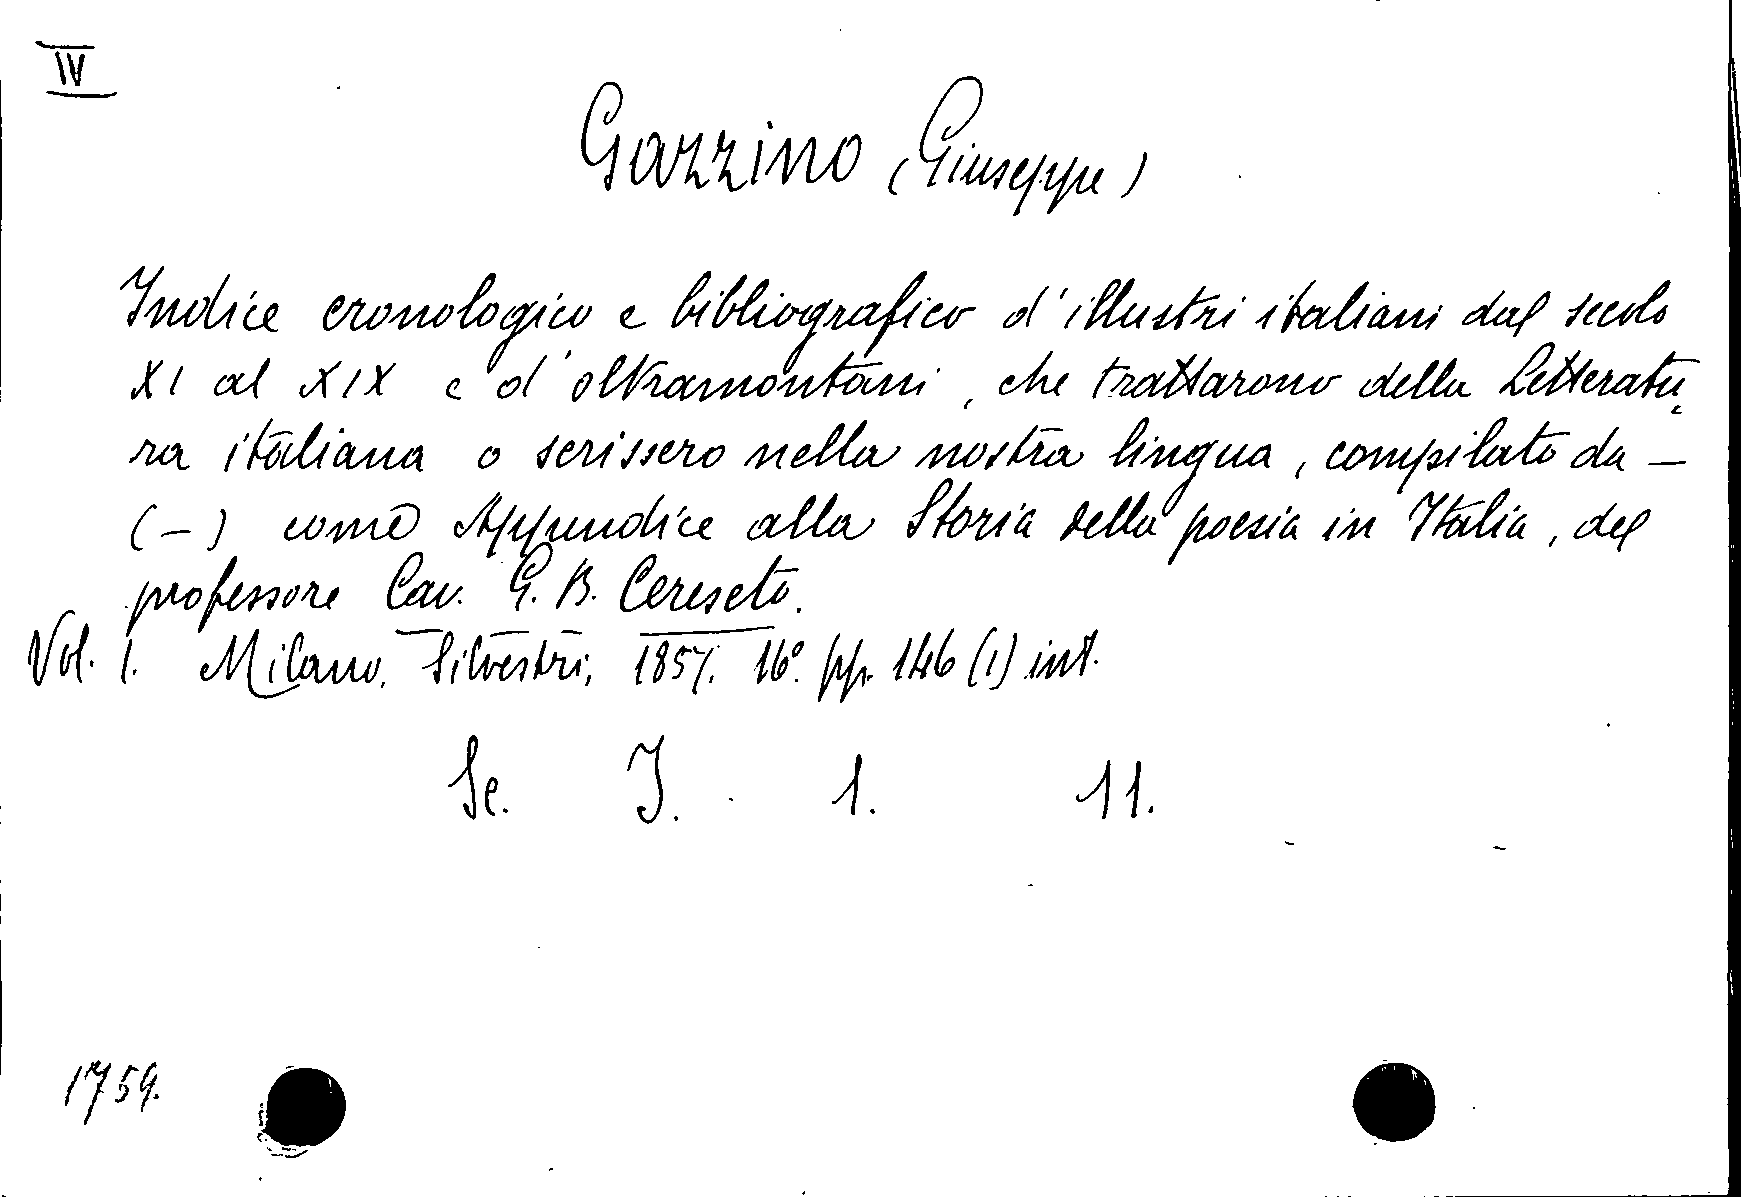 IV
Gazzino (Giuseppe)
Indice cronologico e bibliografico d'illustri italiani dal secolo
XI al XIX e d'oltramontani, che trattarono della Letteratu
ra italiana o scrissero nella nostra lingua, compilato da —
(—) come Appendice alla Storia della poesia in Italia, del
professore Cav. G. B. Cereseto.
Vol. 1. Milano, Silvestri, 1857. 16° pp. 146 (1) int.
Se. I. 1. 11.
1759.